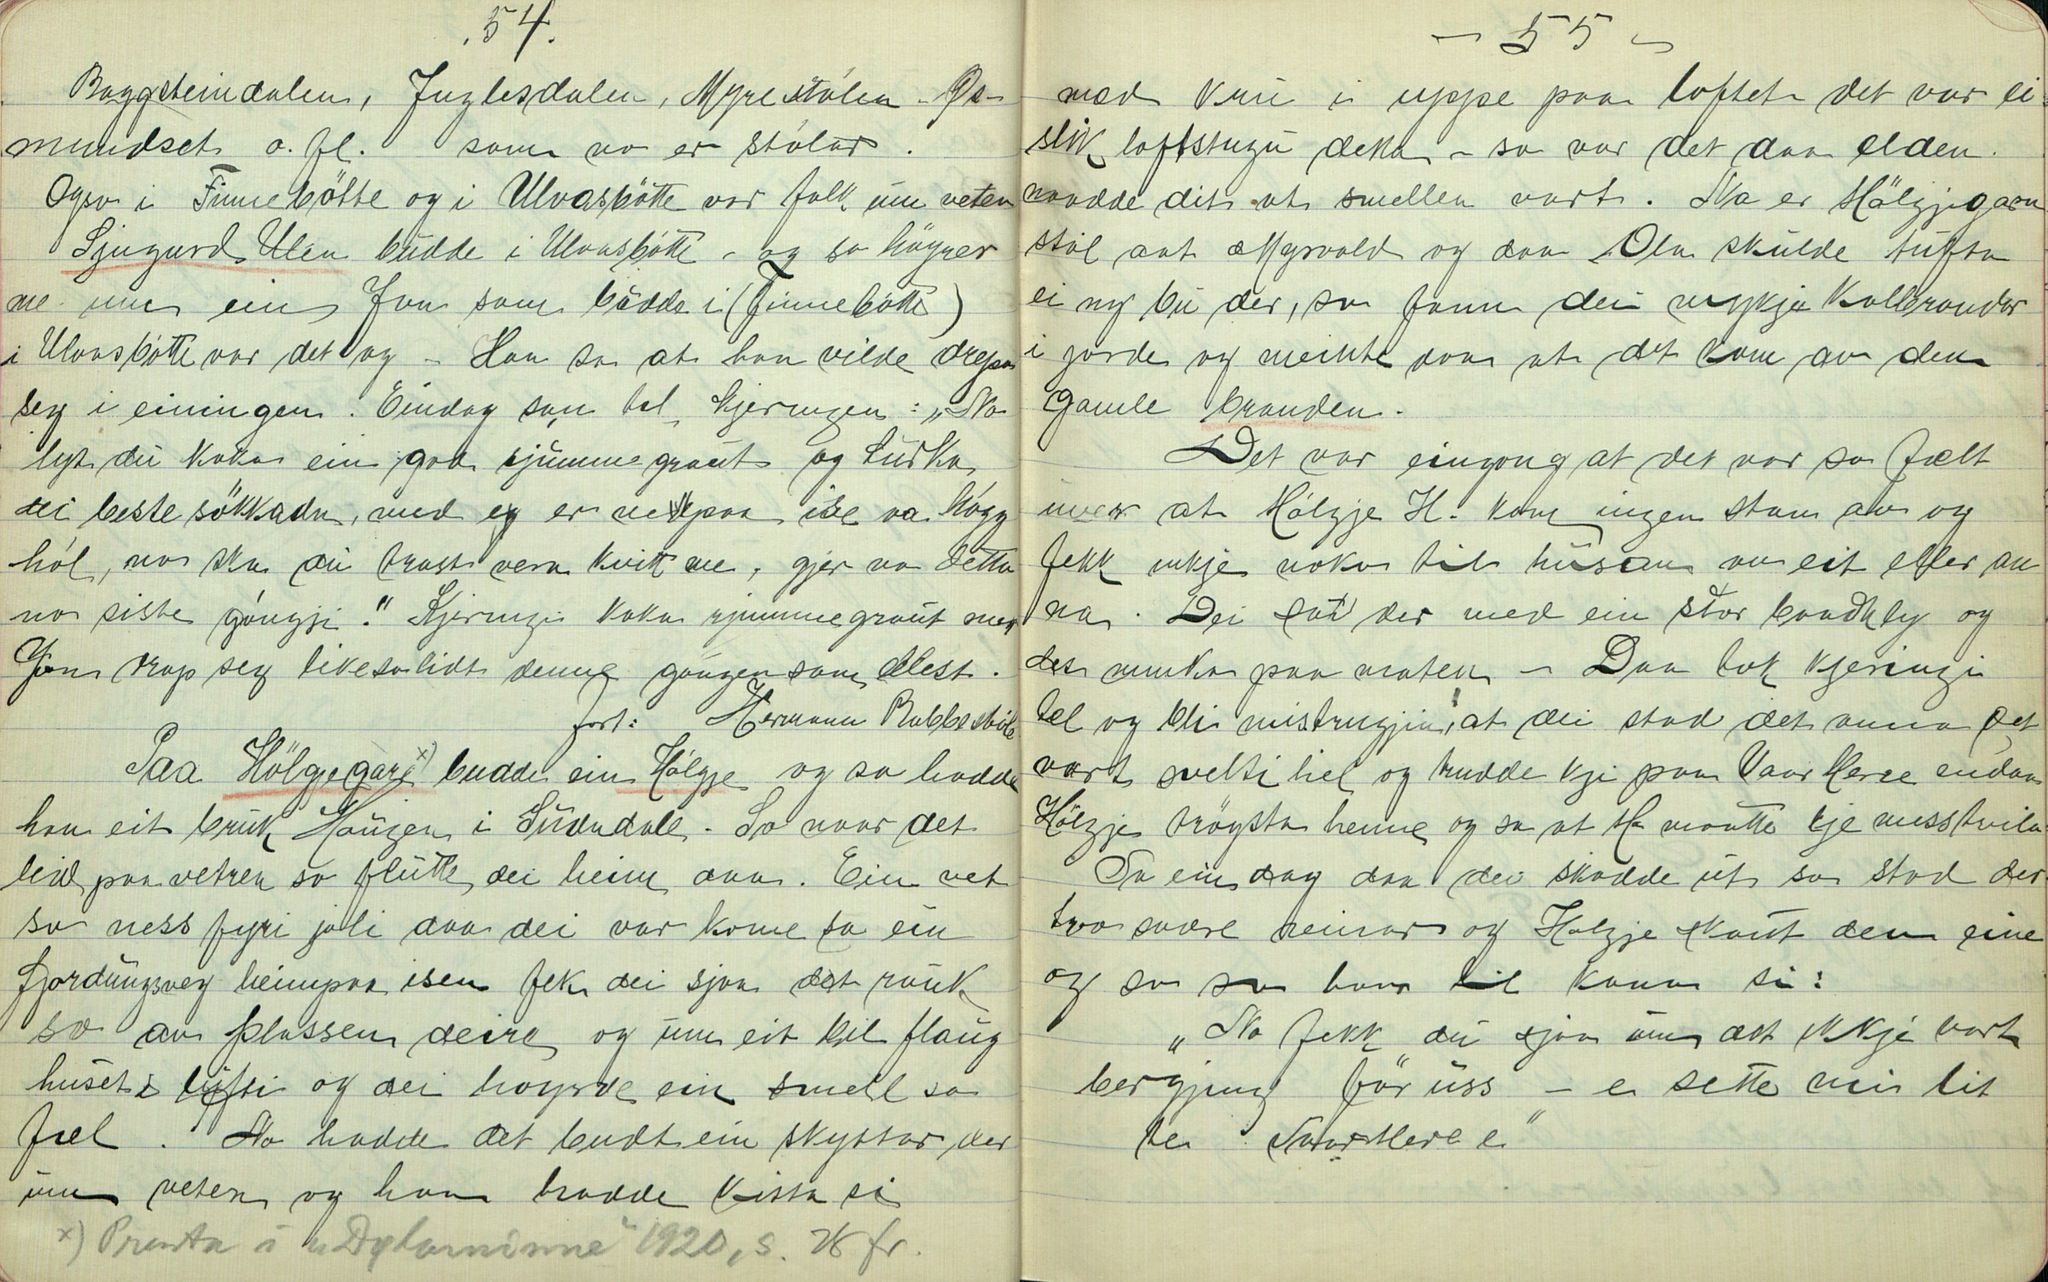 .54.
Baggsteindalen, Juglesdalen, Myrestölen - Øs-
mundset o. fl. som no er stölar.
Ogso i Finnebötte og i Ulvasbötte var folk um veteren
Sjugurd Ulen budde i Ulvasbötte - og so höyrer
me um ein Jon som bödde i (Finnebötte)
i Ulvasbötte var det og - Han sa at han vilde drepa
seg i einingen. Eindag sa'n tel kjeringen: „No
lyt du koka ein god rjummegraut og turka
dei beste sökkadn, med eg er ute paa ise aa högg
hol, no ska du brast vera kvitt me, gjer no detta
no siste gongji!" Kjeringi koka rjummegraut men
Jon drap seg likesolidt denne gongen som elles.
fort: Hermann Bubbestöle
Paa Hölgjegarx) budde ein Hölgje og so hadde
han eit bruk Haugen i Sudndale. So naar det
leid paa vetren so flutte dei heim daa. Ein vet
so ness fyri joli daa dei var kome so ein
fjordungsveg heimpaa isen fek dei sjaa det rauk
so av plassen deire og um eit bil flaug
huset i lufti og dei høyrde ein smell so
fæl. No hadde det budt ein skyttar der
um veteren og han hadde kista si
x) Prenta i „Dølaminne" 1920, s. 76 fr.
- 55 -
med kru i uppe paa loftet det var ei
slik loftstugu dekka - so var det daa elden
naadde dit at smellen vart. No er Hölgjegarn
stöl aat Myrvold og daa Ola skulde tufta
ei ny bu der, so fann dei mykje kolbrandar
i jorde og meinte daa at det kom av den
gamle branden.
Det var eingong at det var so fælt
uver at Hölgje H. kom ingen stan av og
fekk inkje noko til husan av eit eller an
na. Dei sat der med ein stor baadnly og
det minka paa maten - Daa tok kjeringi
tel og bli mistrugjin, at dei stod det anna det
vart svelti hel og trudde kji paa Vaar Herre endaa
Hölgje trøysta henne og sa at Ho maatte kje misstvila
So ein dag daa dei skodde ut so stod der
tvo svære reinar og Holgje skaut den eine
og so sa han til kona si:
„No fekk du sjaa um det ikkji vart
bergjing för uss - e sette mi lit
te Vaar Herre e"